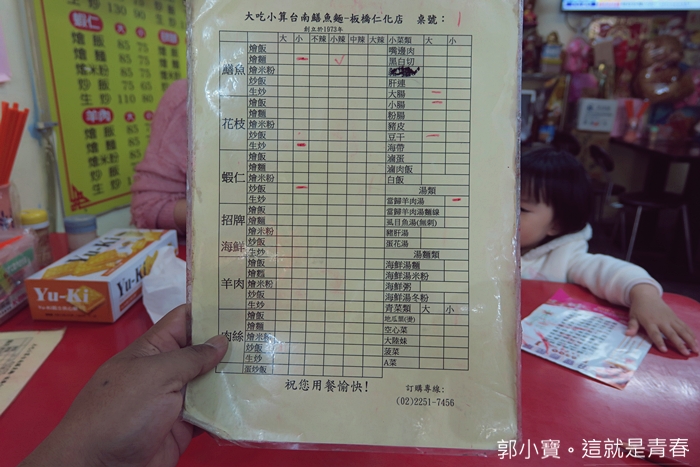 大吃小算台南鱔魚麵-板橋仁化店 桌號： 1
創立於1973年
大 小 不辣 小辣 中辣 大辣 小菜類 大 小
鱔魚
燴飯
燴麵
燴米粉
炒飯
生炒
花枝
燴飯
燴麵
燴米粉
炒飯
生炒
蝦仁
燴飯
燴麵
燴米粉
炒飯
生炒
招牌
海鮮
燴飯
燴麵
燴米粉
炒飯
生炒
羊肉
燴飯
燴麵
燴米粉
炒飯
生炒
肉絲
燴飯
燴麵
燴米粉
炒飯
生炒
蛋炒飯
嘴邊肉
黑白切
肝連
大腸
小腸
粉腸
豬皮
豆干
海帶
滷蛋
滷肉飯
白飯
湯類
當歸羊肉湯
當歸羊肉湯麵線
虱目魚湯(無刺)
豬肝湯
蛋花湯
湯麵類
海鮮湯麵
海鮮湯米粉
海鮮粥
海鮮湯冬粉
青菜類 大 小
地瓜葉(燙)
空心菜
大陸妹
菠菜
A菜
祝您用餐愉快!
訂購專線:
(02)2251-7456
蝦仁
羊肉
Yu-Ki
Yu-Ki
郭小寶。這就是青春